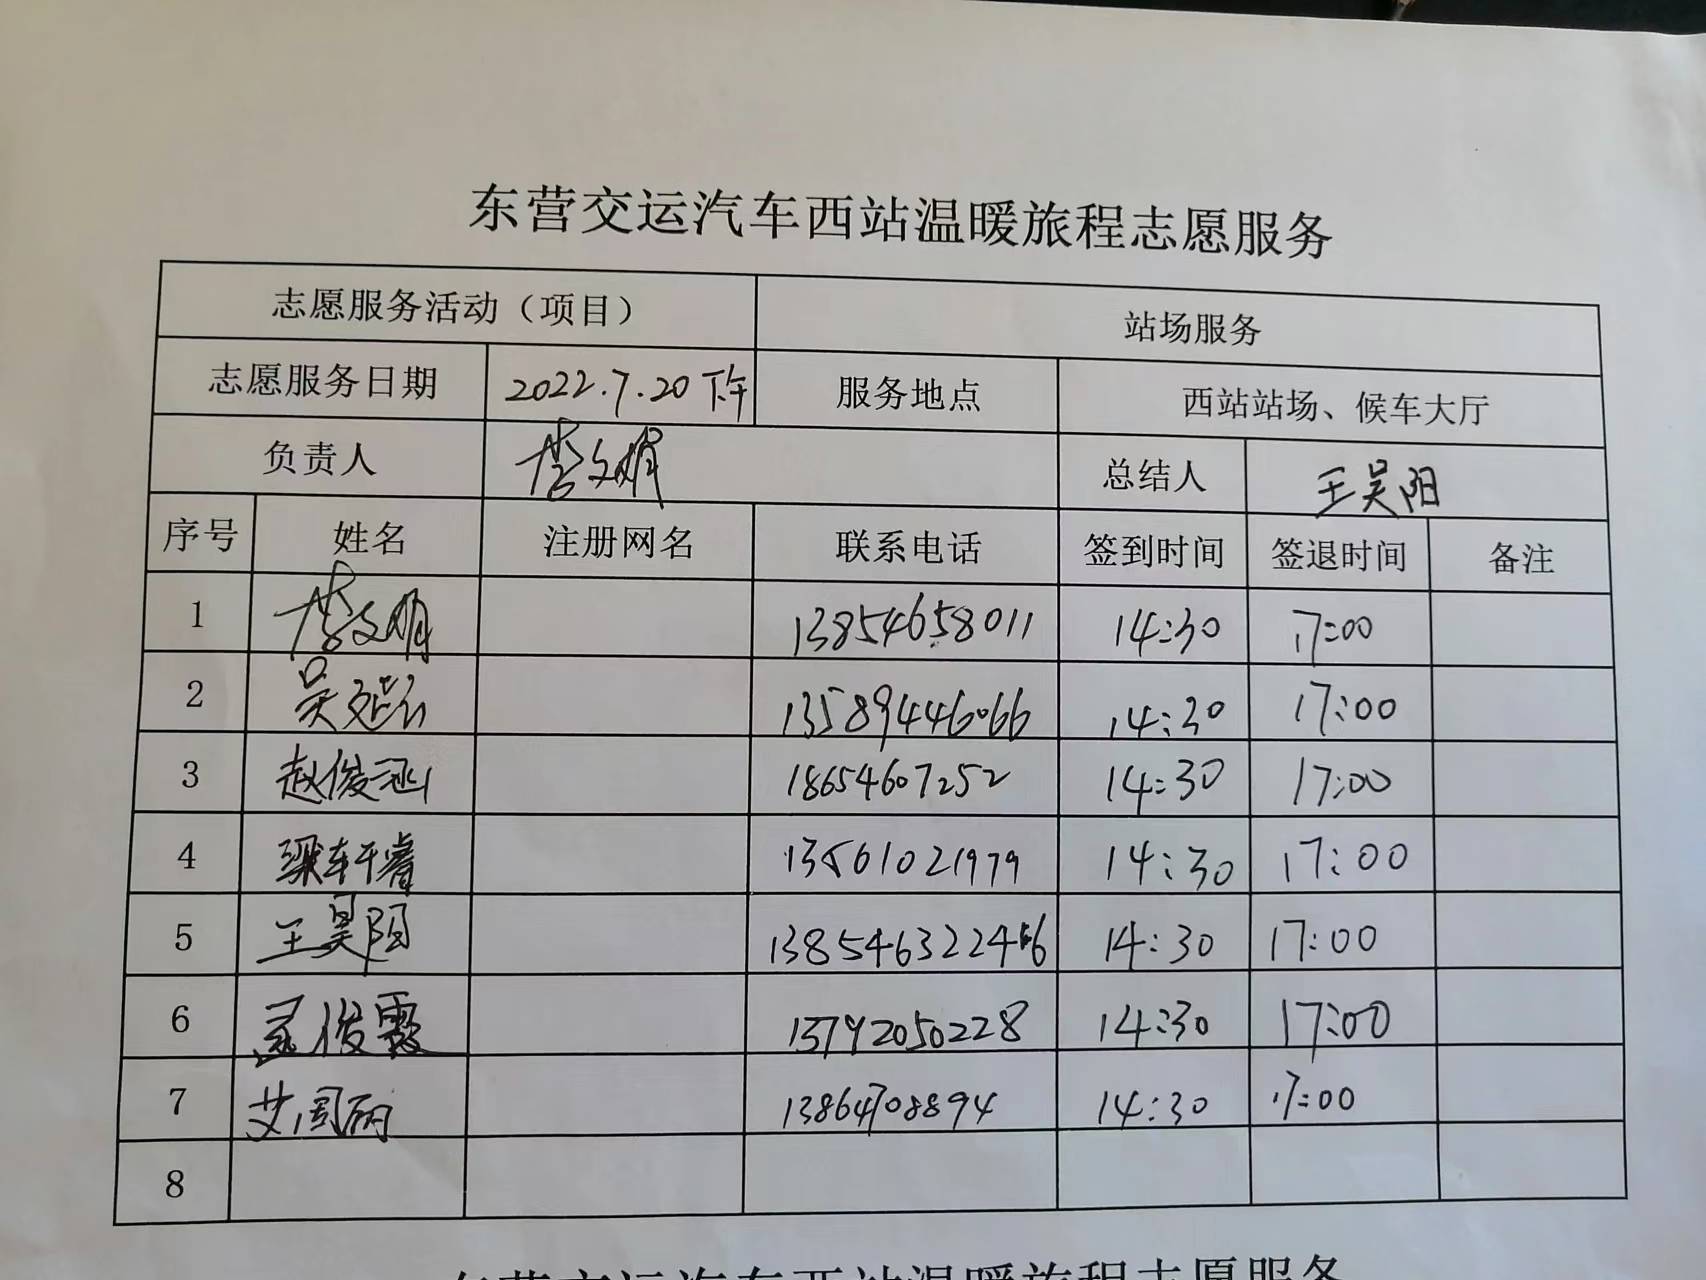 东营交运汽车西站温暖旅程志愿服务
志愿服务活动（项目） 站场服务
志愿服务日期 2022.7.20下午 服务地点 西站站场、候车大厅
负责人 李文娟 总结人 王昊阳
序号 姓名 注册网名 联系电话 签到时间 签退时间 备注
1 李文娟 13854658011 14:30 17:00
2 吴延云 13589446066 14:30 17:00
3 赵俊涵 18654607252 14:30 17:00
4 梁轩睿 13561021979 14:30 17:00
5 王昊阳 138546322 14:30 17:00
6 孟俊霞 13792050228 14:30 17:00
7 艾闺丽 13864708894 14:30 17:00
8
东营交运汽车西站温暖旅程志愿服务